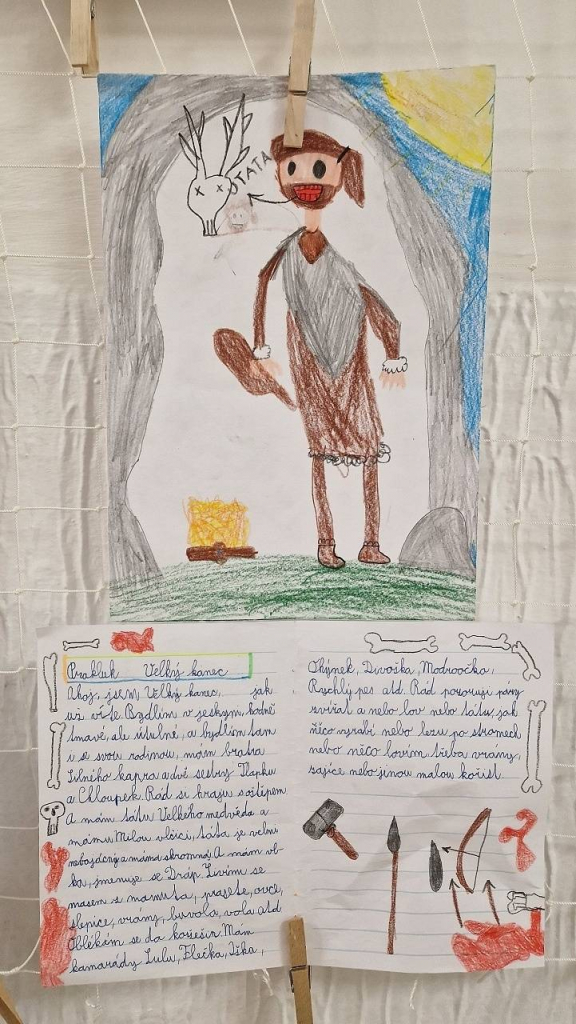 TATA
Prakluk Velký kanec
Ahoj, jsem Velký kanec, jak
už víte. Bydlím v jeskyni, hodně
tmavé, ale útulné, a bydlím tam
i se svou rodinou, mám bratra
Silného kapra a dvě sestry Tlapku
a Chloupek. Rád si hraju s oštěpem
A mám tátu Velkého medvěda a
mámu Milou vlčici, táta je velmi
nebojácný a máma skromná. A mám vl-
ka, jmenuje se Dráp. Živím se
masem z mamuta, prasete, ovce,
slepice, vrány, buvola, vola atd
Oblékám se do kožešin. Mám
kamarády Lulu, Flečka, Jiska,
Ohýnek, Divoška, Modroočko,
Rychlý pes atd. Rád pozoruji páry
zvířat a nebo lov nebo tátu, jak
něco vyrábí nebo lezu po stromech
nebo něco lovím, třeba vrány,
zajíce nebo jinou malou kořist.